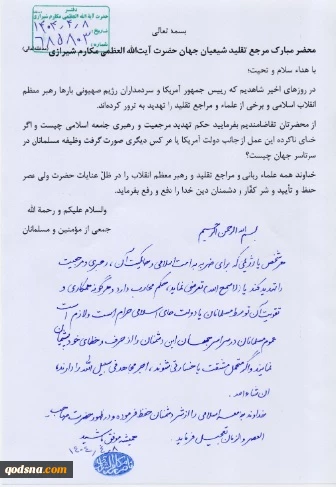 دفتر
حضرت آیت الله العظمی مکارم شیرازی
۱۴۰۴,۴,۸
۶۸۵۸۰۳
بسمه تعالی
محضر مبارک مرجع تقلید شیعیان جهان حضرت آیت‌الله العظمی مکارم شیرازی
با هداء سلام و تحیت؛
در روزهای اخیر شاهدیم که رییس جمهور آمریکا و سردمداران رژیم صهیونی بارها رهبر معظم
انقلاب اسلامی و برخی از علماء و مراجع تقلید را تهدید به ترور کرده‌اند.
از محضرتان تقاضامندیم بفرمایید حکم تهدید مرجعیت و رهبری جامعه اسلامی چیست و اگر
خدای ناکرده این عمل از جانب دولت آمریکا یا هر کس دیگری صورت گرفت وظیفه مسلمانان در
سرتاسر جهان چیست؟
خداوند همه علماء ربانی و مراجع تقلید و رهبر معظم انقلاب را در ظلّ عنایات حضرت ولی عصر
حفظ و تأیید و شر کفّار و دشمنان دین خدا را دفع و رفع بفرماید.
والسلام علیکم و رحمة الله
جمعی از مؤمنین و مسلمانان
بسم الله الرحمن الرحیم
هر شخص یا رژیمی که برای ضربه به امت اسلامی و حاکمیت آن، رهبری و مرجعیت
را تهدید کند یا (لا سمح الله) تعرض نماید، حکم محارب دارد و هرگونه همکاری و
تقویت آن توسط مسلمانان یا دولت های اسلامی حرام است و لازم است
عموم مسلمانان در سراسر جهان این دشمنان را از حرف و خطای خود پشیمان
نمایند و اگر متحمل مشقت یا خسارتی شوند، اجر مجاهد فی سبیل الله را دارند،
ان شاء الله.
خداوند جامعه اسلامی را از شر دشمنان حفظ فرموده و در ظهور حضرت صاحب
العصر و الزمان تعجیل فرماید.
همیشه موفق باشید
۱۴۰۴,۴,۸
qodsna.com